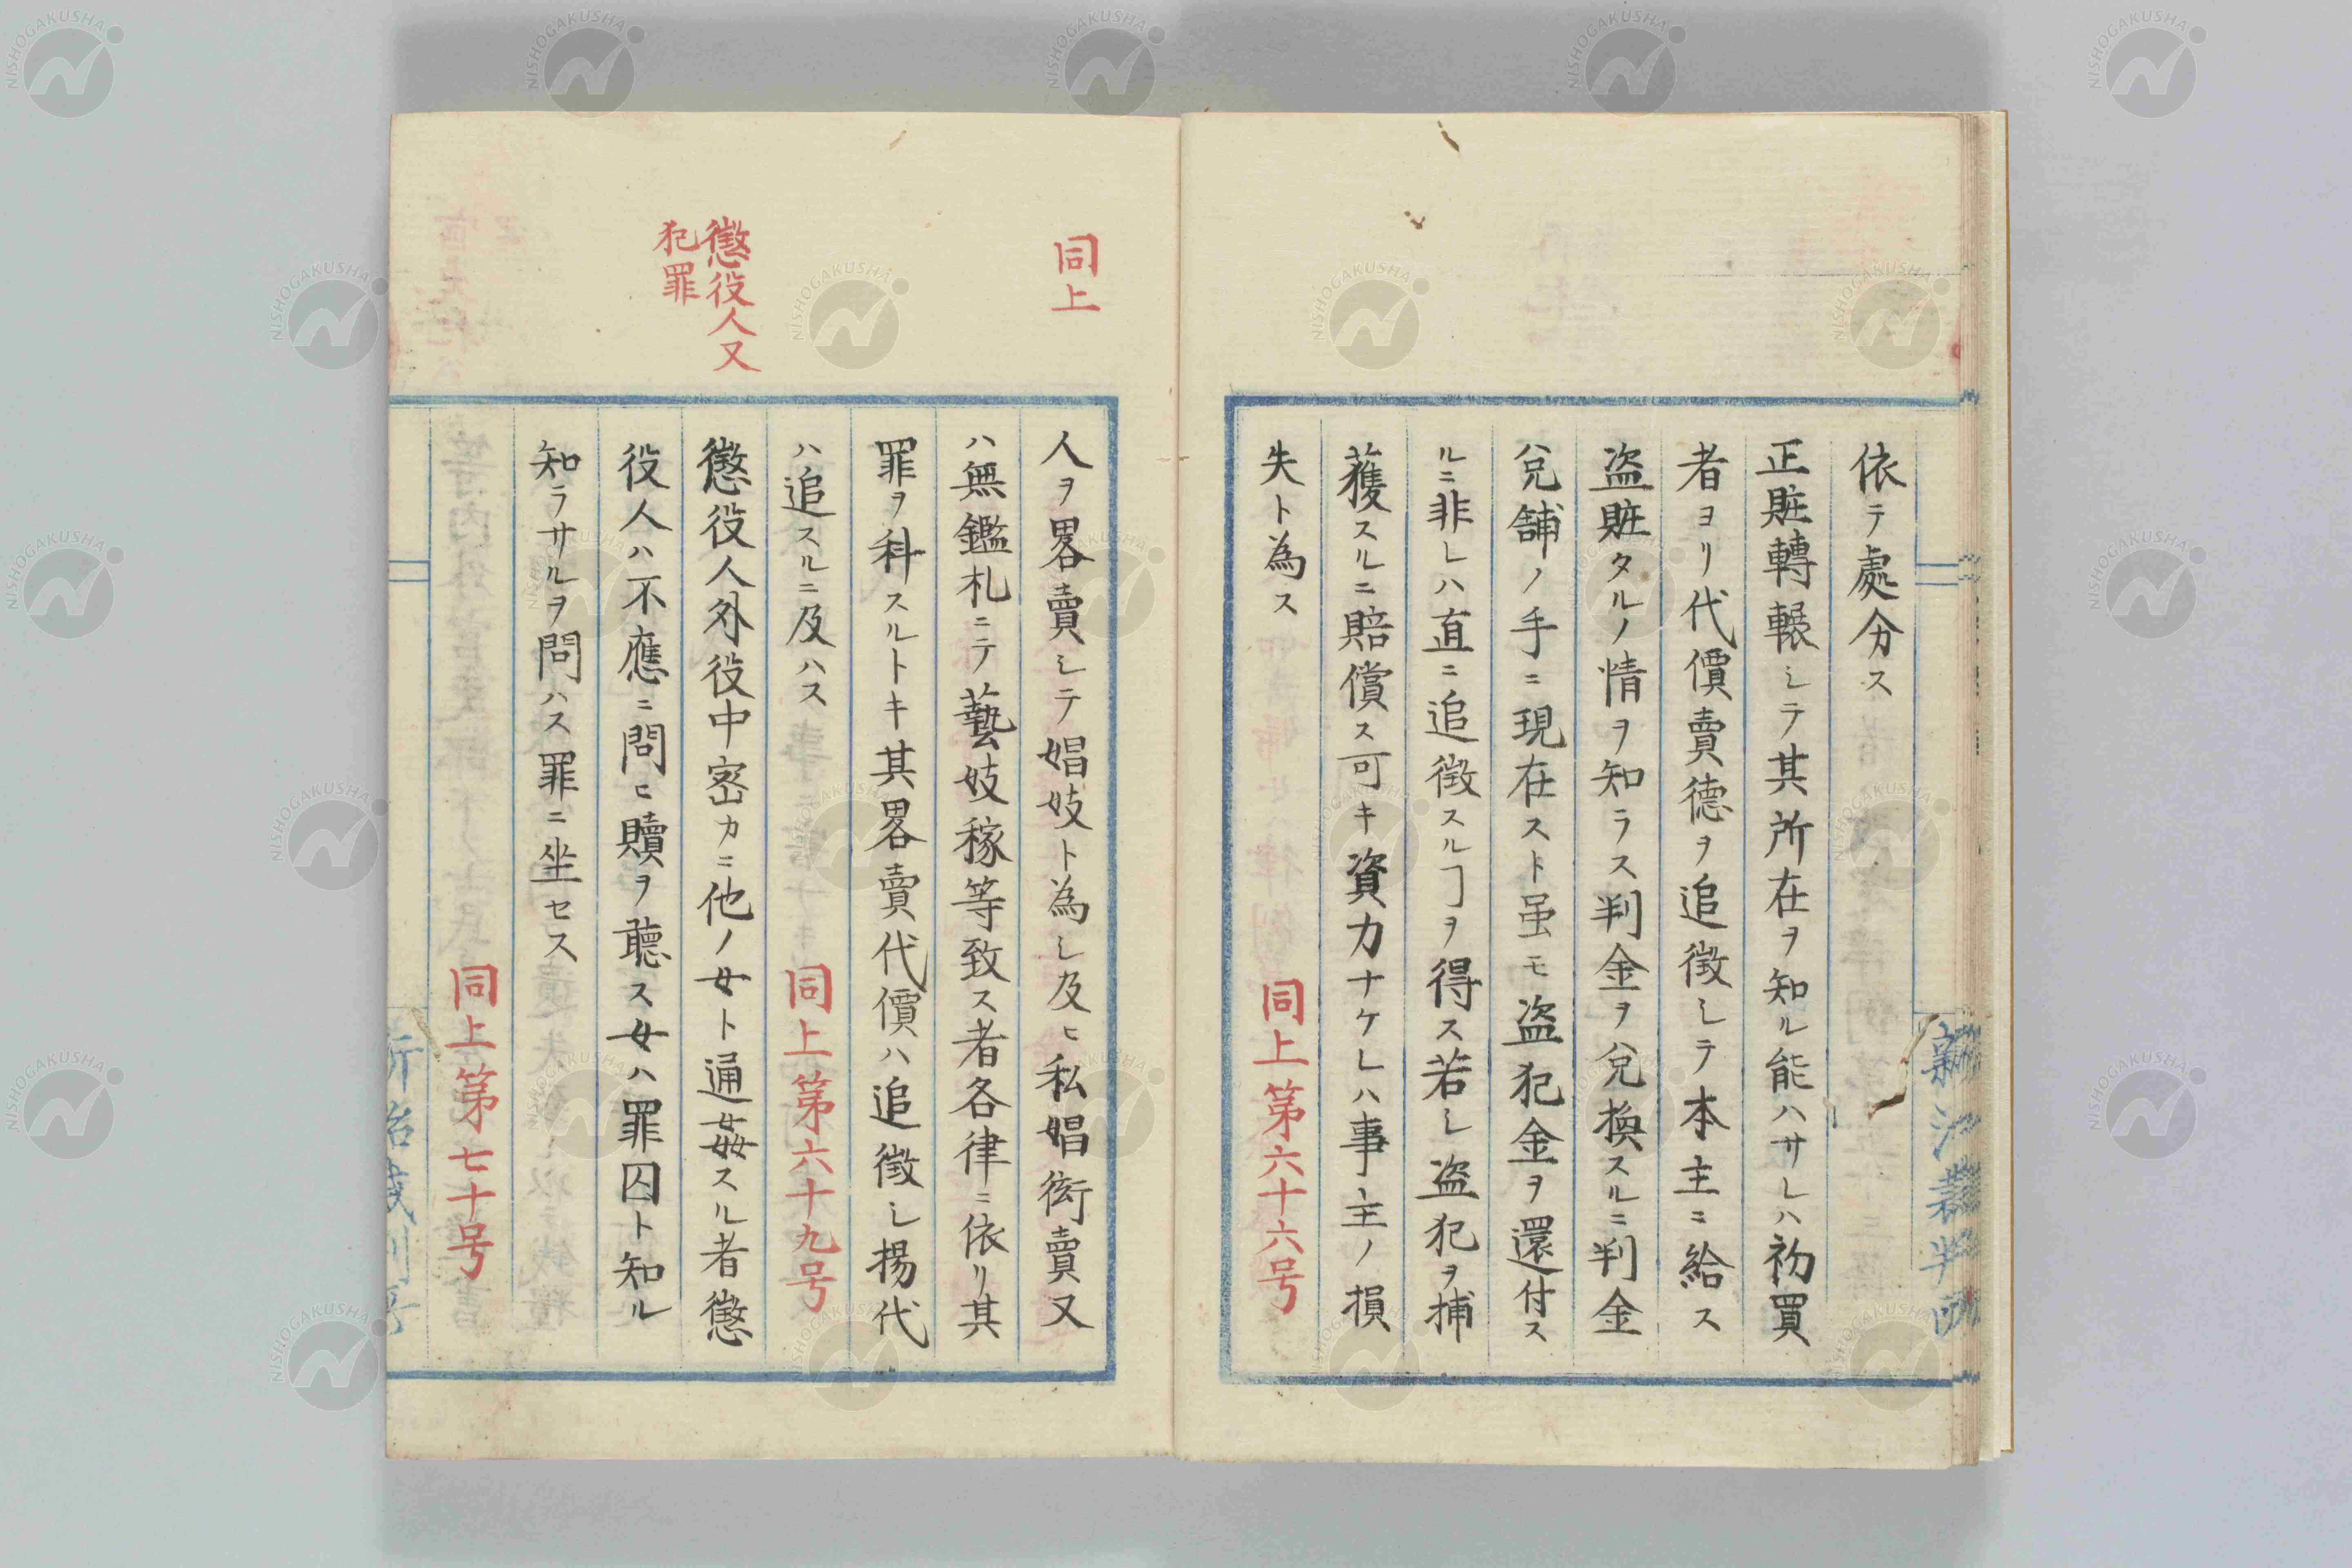 依テ處分ス
正賍轉輾シテ其所在ヲ知ル能ハサレハ初買
者ヨリ代價賣德ヲ追徴シテ本主ニ給ス
盗賍タルノ情ヲ知ラス判金ヲ兌換スルニ判金
兌舗ノ手ニ現在スト虽モ盗犯金ヲ還付ス
ルニ非レハ直ニ追徴スルヿヲ得ス若シ盗犯ヲ捕
獲スルニ賠償ス可キ資力ナケレハ事主ノ損
失ト為ス
同上第六十六号
同上
人ヲ畧賣シテ娼妓ト為シ及ヒ私娼衒賣又
ハ無鑑札ニテ藝妓稼等致ス者各律ニ依リ其
罪ヲ科スルトキ其畧賣代價ハ追徴シ揚代
ハ追スルニ及ハス
同上第六十九号
懲役人又
犯罪
懲役人外役中密カニ他ノ女ト通姦スル者懲
役人ハ不應ニ問ヒ贖ヲ聴ス女ハ罪囚ト知ル
知ラサルヲ問ハス罪ニ坐セス
同上第七十号
NISHOGAKUSHA